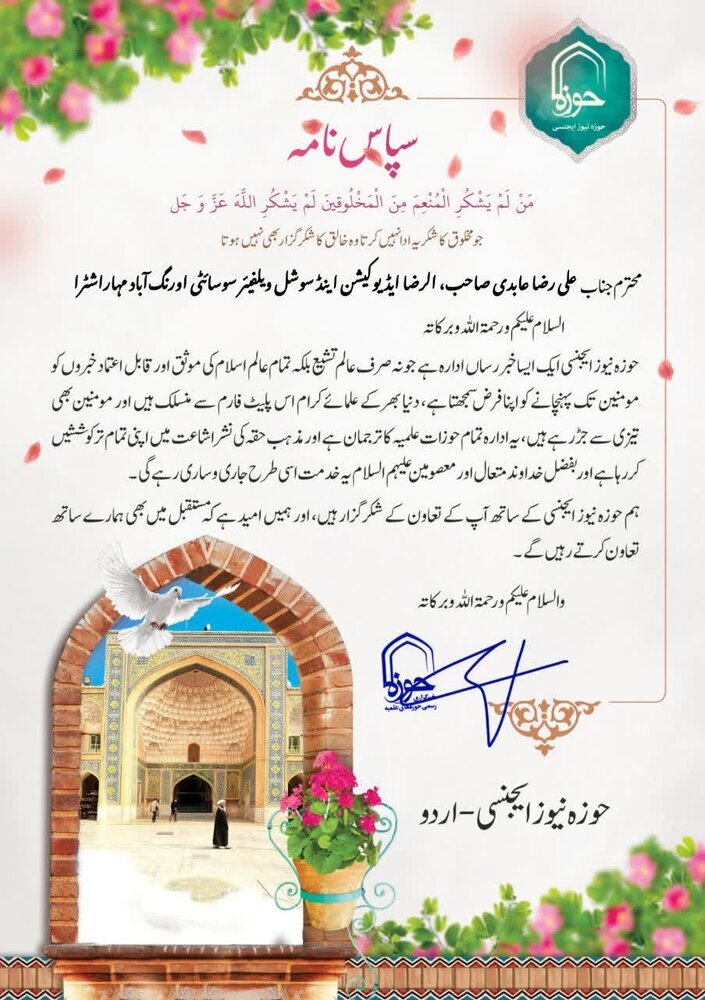 حوزہ
حوزہ نیوز ایجنسی
سپاس نامہ
مَنْ لَمْ يَشْكُرِ الْمُنْعِمَ مِنَ الْمَخْلُوقِينَ لَمْ يَشْكُرِ اللَّهَ عَزَّ وَ جَل
جو مخلوق کا شکریہ ادا نہیں کرتا وہ خالق کا شکر گزار بھی نہیں ہوتا
محترم جناب علی رضا عابدی صاحب، الرضا ایڈیوکیشن اینڈ سوشل ویلفیئر سوسائٹی اورنگ آباد مہاراشٹرا
السلام علیکم ورحمۃ اللہ وبرکاتہ
حوزہ نیوز ایجنسی ایک ایسا خبر رساں ادارہ ہے جو نہ صرف عالم تشیع بلکہ تمام عالم اسلام کی موثق اور قابل اعتماد خبروں کو
مومنین تک پہنچانے کو اپنا فرض سمجھتا ہے، دنیا بھر کے علمائے کرام اس پلیٹ فارم سے منسلک ہیں اور مومنین بھی
تیزی سے جڑ رہے ہیں، یہ ادارہ تمام حوزات علمیہ کا ترجمان ہے اور مذہب حقہ کی نشر اشاعت میں اپنی تمام تر کوششیں
کر رہا ہے اور بفضل خداوند متعال اور معصومین علیہم السلام یہ خدمت اسی طرح جاری و ساری رہے گی۔
ہم حوزہ نیوز ایجنسی کے ساتھ آپ کے تعاون کے شکر گزار ہیں، اور ہمیں امید ہے کہ مستقبل میں بھی ہمارے ساتھ
تعاون کرتے رہیں گے۔
والسلام علیکم ورحمۃ اللہ وبرکاتہ
حوزه
خبرگزاری
رسمی حوزه‌های علمیه
حوزہ نیوز ایجنسی - اردو